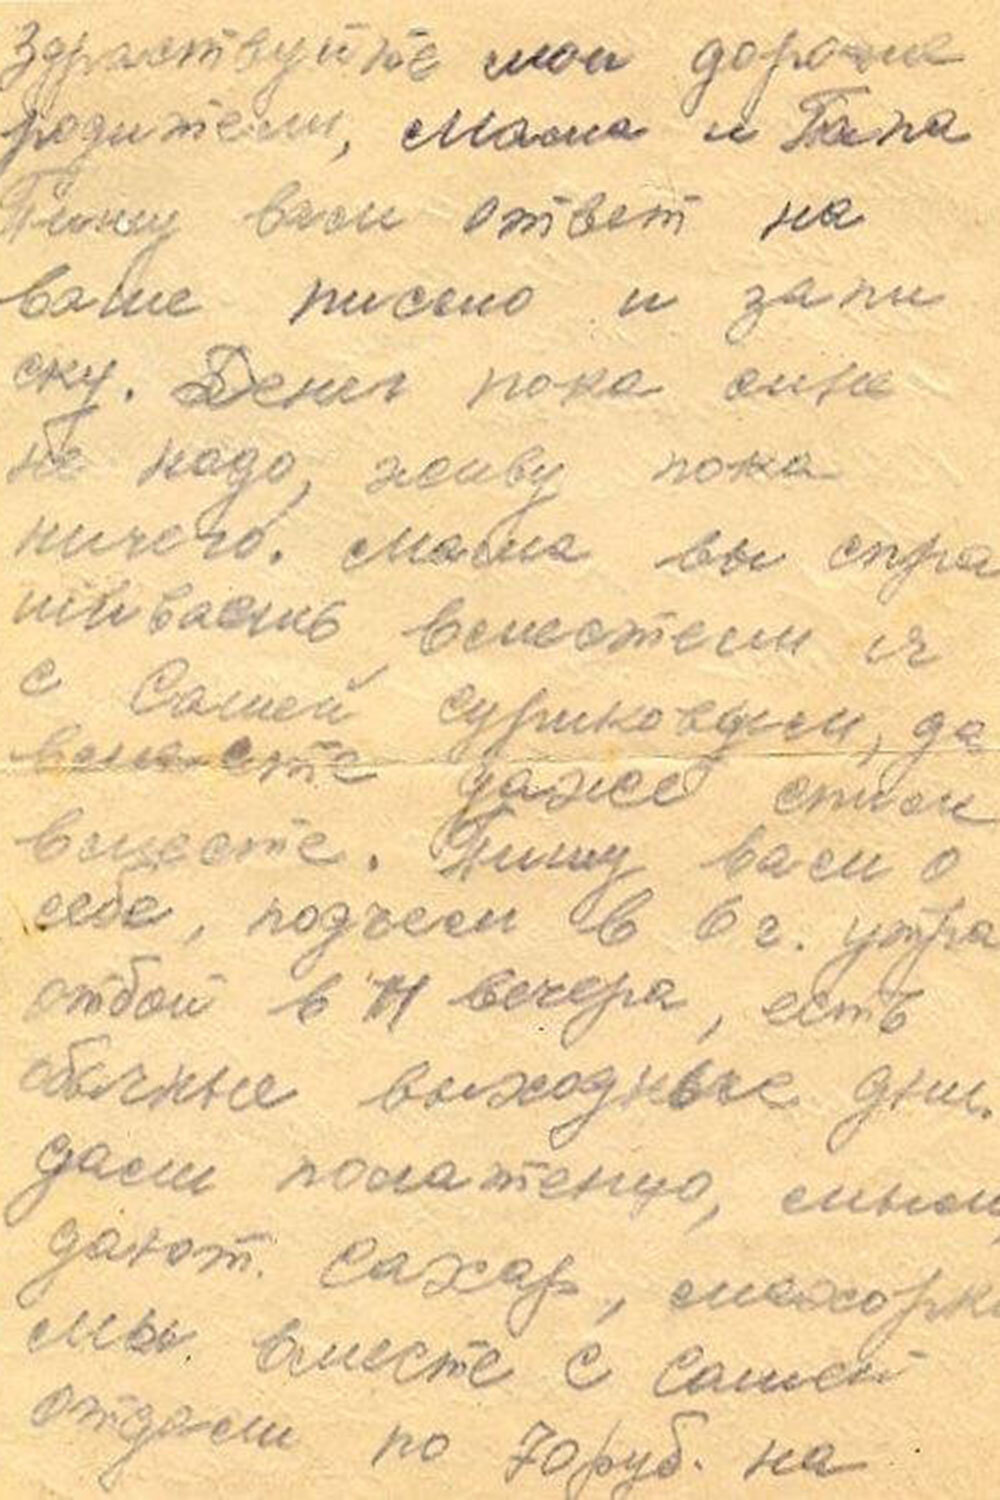 Здраствуйте мои дорогие
родители, Мама и Папа
Пишу вам ответ на
ваше письмо и запи
ску. Денег пока мне
не надо, живу пока
ничего. Мама вы спра
шиваешь вместе ли я
с Сашей Суриковым, да
вместе даже спим
вместе. Пишу вам о
себе, подъем в 6 ч. утра
отбой в 11 вечера, есть
обычные выходные дни.
дали полатенцо, мыло,
дают. Сахар, махорку
мы вместе с Сашей
отдали по 70 руб. на